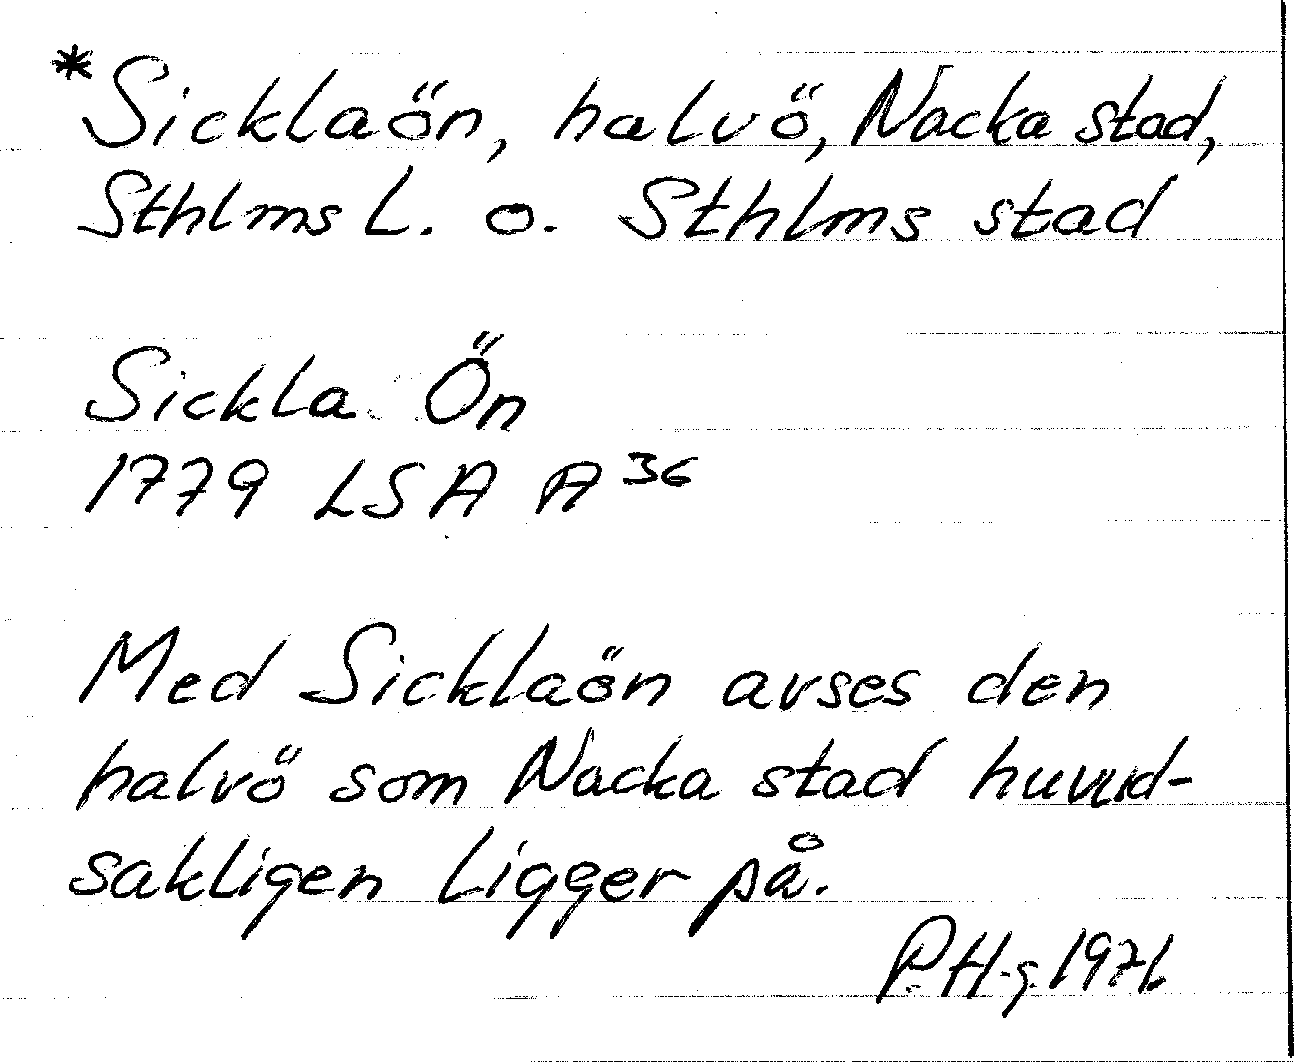 *Sicklaön, halvö, Nacka stad,
Sthlms L. o. Sthlms stad
Sickla Ön
1779 LSA A 36
Med Sicklaön avses den
halvö som Nacka stad huvud-
sakligen ligger på.
P.H-g. 1971.